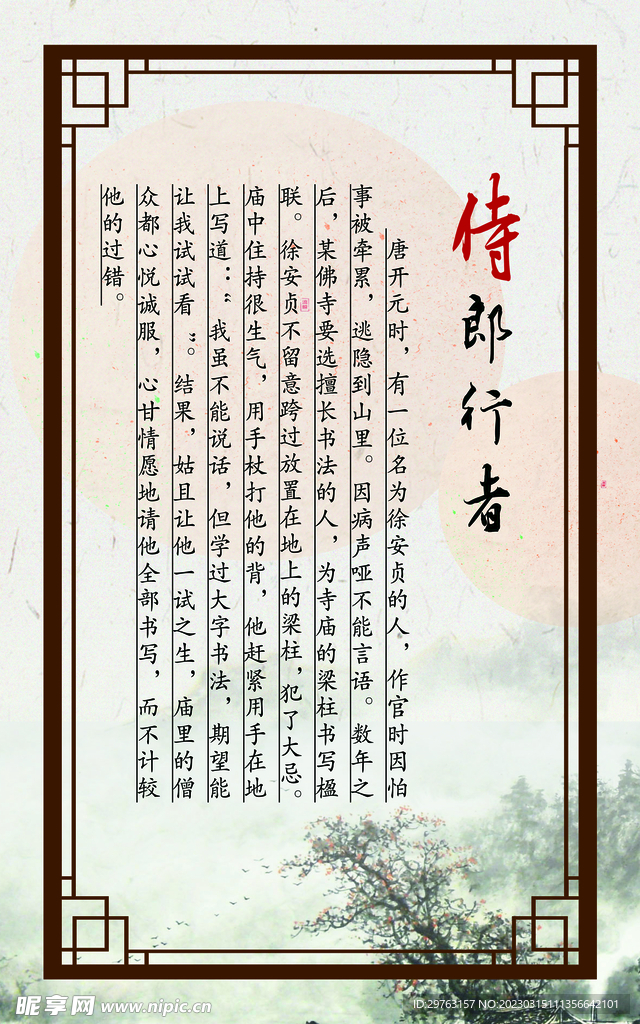 侍郎行者
唐开元时，有一位名为徐安贞的人，作官时因怕
事被牵累，逃隐到山里。因病声哑不能言语。数年之
后，某佛寺要选擅长书法的人，为寺庙的梁柱书写楹
联。徐安贞不留意跨过放置在地上的梁柱，犯了大忌。
庙中住持很生气，用手杖打他的背，他赶紧用手在地
上写道：“我虽不能说话，但学过大字书法，期望能
让我试试看”。结果，姑且让他一试之生，庙里的僧
众都心悦诚服，心甘情愿地请他全部书写，而不计较
他的过错。
昵享网 www.nipic.cn
ID:29763157 NO:20230315111356642101